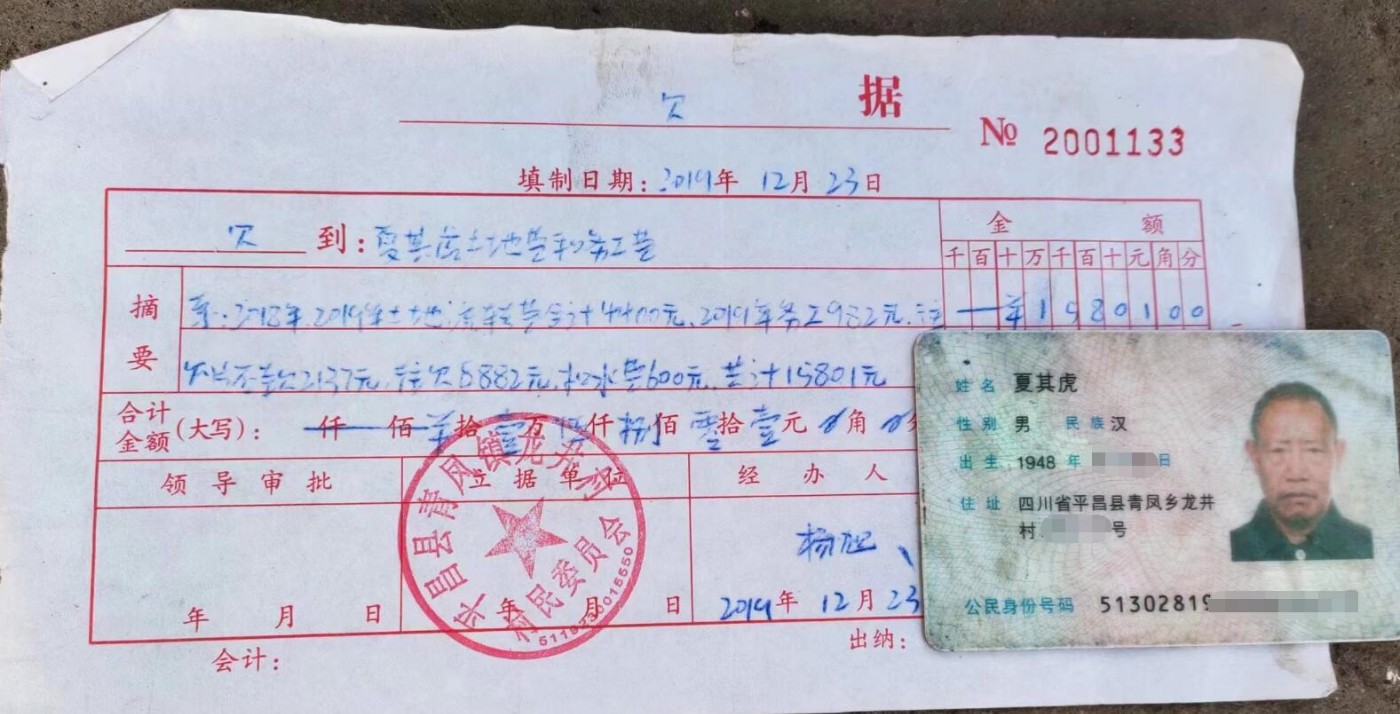 欠 据
№ 2001133
填制日期：2019年 12月 23日
欠 到：夏其虎土地费和务工费
金 额
千百十万千百十元角分
摘要
系：2018年、2019年土地流转费合计4400元、2019年务工982元、
1580100
欠2137元、欠8882元、水费600元、共计15801元
合计金额(大写)： 仟 佰 拾 壹万 伍仟 捌佰 零拾 壹元 角
领导审批
立据单位
经办人
杨旭
年 月 日
年 月 日
2019年 12月 23
会计：
出纳：
平昌县青凤镇龙井村
村民委员会
姓名 夏其虎
性别 男 民族 汉
出生 1948 年 日
住址 四川省平昌县青凤乡龙井
村 号
公民身份号码 51302819